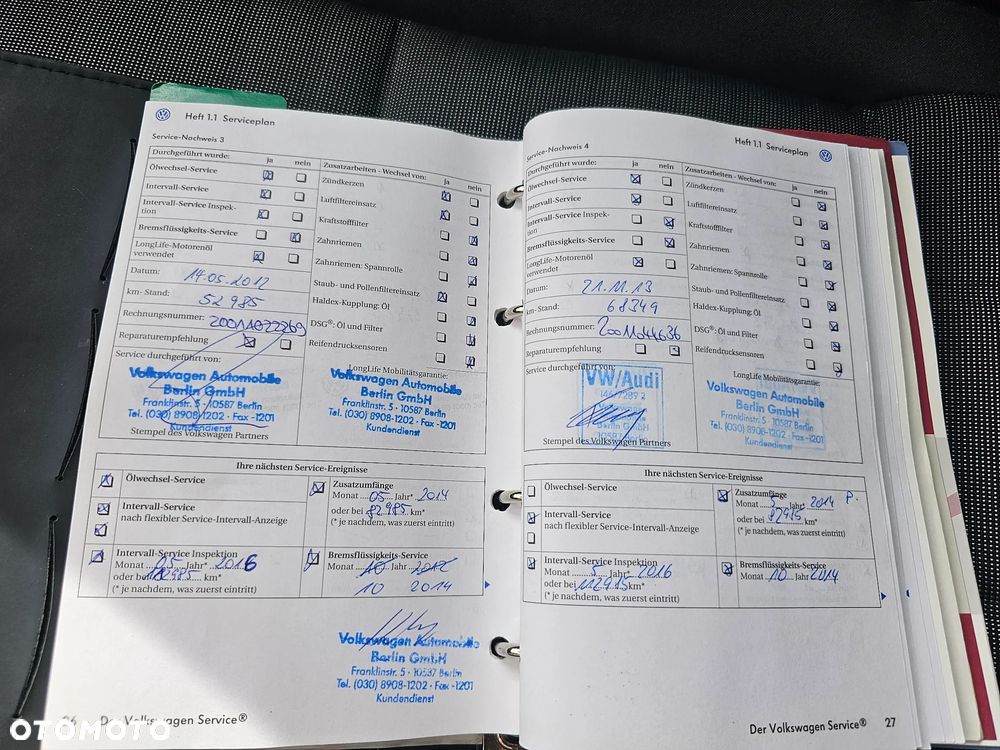 Heft 1.1 Serviceplan
Service-Nachweis 3
Durchgeführt wurde: ja nein
Ölwechsel-Service
Intervall-Service
Intervall-Service Inspek-
tion
Bremsflüssigkeits-Service
LongLife-Motorenöl
verwendet
Datum: 14.05.2012
km- Stand: 52985
Rechnungsnummer:
Reparaturempfehlung
Service durchgeführt von:
Volkswagen Automobile
Berlin GmbH
Franklinstr. 5 · 10587 Berlin
Tel. (030) 8908-1202 · Fax -1201
Kundendienst
Stempel des Volkswagen Partners
Zusatzarbeiten - Wechsel von: ja nein
Zündkerzen
Luftfiltereinsatz
Kraftstofffilter
Zahnriemen
Zahnriemen: Spannrolle
Staub- und Pollenfiltereinsatz
Haldex-Kupplung: Öl
DSG®: Öl und Filter
Reifendrucksensoren
LongLife Mobilitätsgarantie:
Volkswagen Automobile
Berlin GmbH
Franklinstr. 5 · 10587 Berlin
Tel. (030) 8908-1202 · Fax -1201
Kundendienst
Ihre nächsten Service-Ereignisse
Ölwechsel-Service
Intervall-Service
nach flexibler Service-Intervall-Anzeige
Intervall-Service Inspektion
Monat 05 Jahr* 2016
oder bei 112985 km*
(* je nachdem, was zuerst eintritt)
Zusatzumfänge
Monat 05 Jahr* 2014
oder bei 82985 km*
(* je nachdem, was zuerst eintritt)
Bremsflüssigkeits-Service
Monat 10 Jahr 2012
10 2014
Volkswagen Automobile
Berlin GmbH
Franklinstr. 5 · 10587 Berlin
Tel. (030) 8908-1202 · Fax -1201
Kundendienst
26 Der Volkswagen Service®
OTOMOTO
Heft 1.1 Serviceplan
Service-Nachweis 4
Durchgeführt wurde: ja nein
Ölwechsel-Service
Intervall-Service
Intervall-Service Inspek-
tion
Bremsflüssigkeits-Service
LongLife-Motorenöl
verwendet
Datum: 21.11.13
km- Stand: 68349
Rechnungsnummer: 2001044636
Reparaturempfehlung
Service durchgeführt von:
VW/Audi
Berlin GmbH
Stempel des Volkswagen Partners
Zusatzarbeiten - Wechsel von: ja nein
Zündkerzen
Luftfiltereinsatz
Kraftstofffilter
Zahnriemen
Zahnriemen: Spannrolle
Staub- und Pollenfiltereinsatz
Haldex-Kupplung: Öl
DSG®: Öl und Filter
Reifendrucksensoren
LongLife Mobilitätsgarantie:
Volkswagen Automobile
Berlin GmbH
Franklinstr. 5 · 10587 Berlin
Tel. (030) 8908-1202 · Fax -1201
Kundendienst
Ihre nächsten Service-Ereignisse
Ölwechsel-Service
Intervall-Service
nach flexibler Service-Intervall-Anzeige
Intervall-Service Inspektion
Monat 5 Jahr* 2016
oder bei 112985 km*
(* je nachdem, was zuerst eintritt)
Zusatzumfänge
Monat 5 Jahr* 2014 P.
oder bei 82985 km*
(* je nachdem, was zuerst eintritt)
Bremsflüssigkeits-Service
Monat 10 Jahr 2014
Der Volkswagen Service® 27